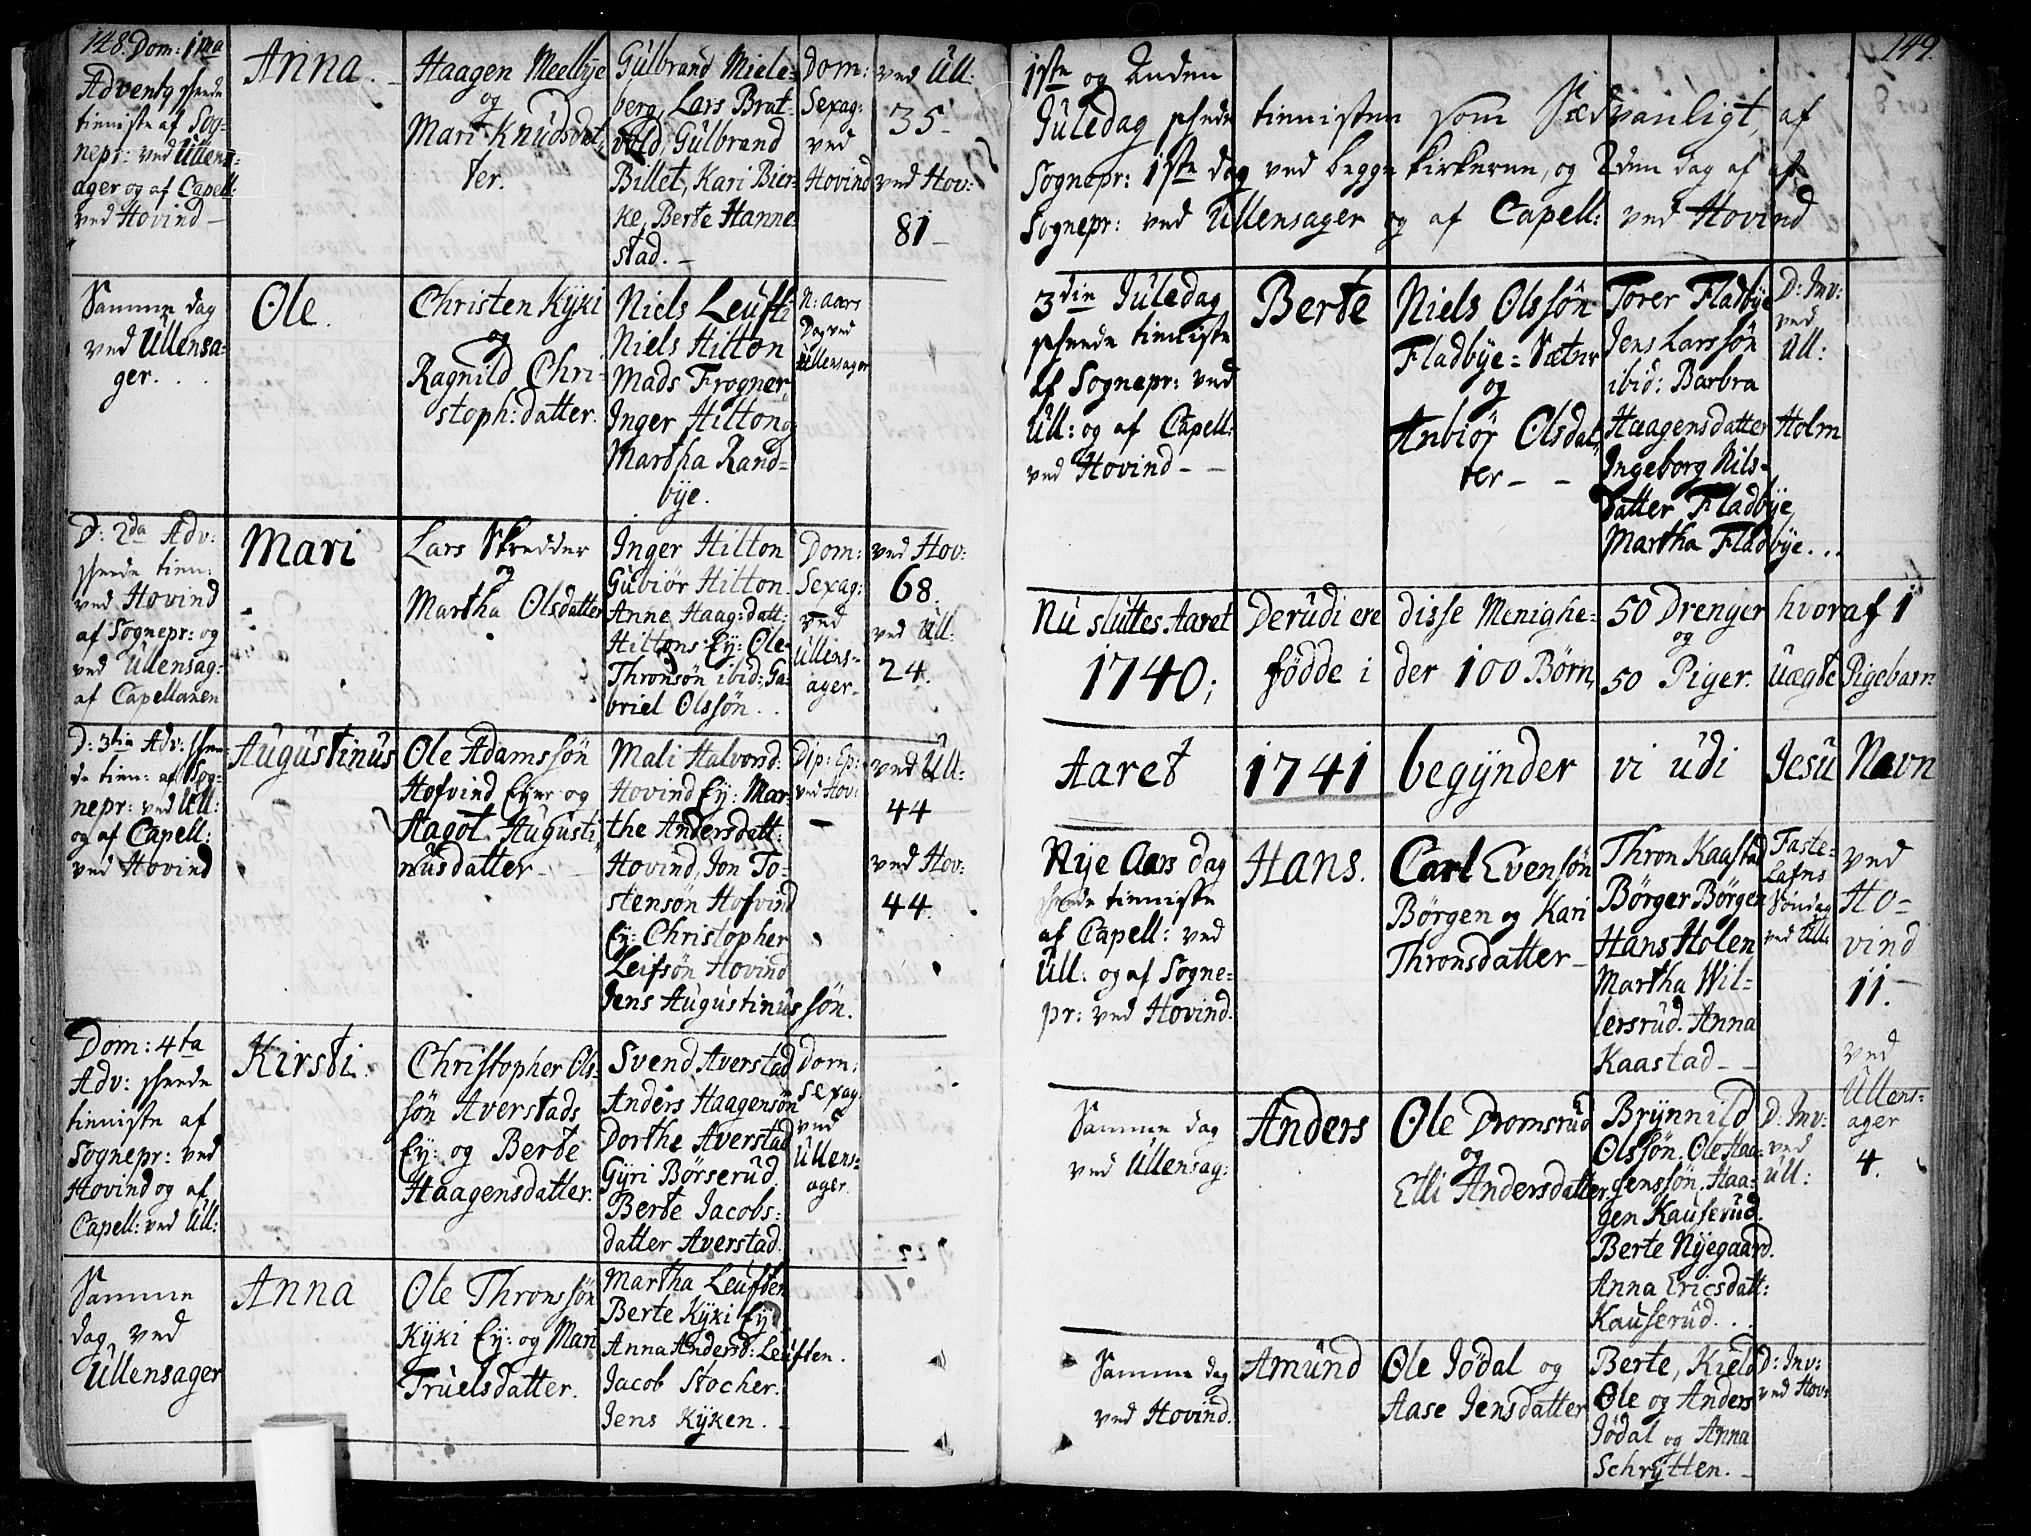 148. Dom: 1ma
Adventq skeede
tienniste af Sog-
nepr: ved Ullens-
ager og af Capell:
ved Hovind -
Anna. -
Haagen Meelbÿe
og
Mari Knudsdat-
ter.
Gulbrand Miele-
berg, Lars Brat-
vold, Gulbrand
Billet, Kari Bier-
ke, Berte Hanne
stad. -
Dom:
Sexag:
ved
Hovind
ved Ull:
35 -
ved Hov:
81 -
Samme dag
ved Ullensa-
ger. . .
Ole.
Christen Kÿxi
og
Ragnild Chri-
stoph: datter.
Niels Leufti
Niels Hilton
Mads Frogner,
Inger Hilton og
Martha Rand-
bÿe.
N: aars
Dag ved
Ullensager
D: 2da Adv:
skeede tien:
ved Hovind
af Sognepr: og
ved Ullensag:
af Capellanen
Mari
Lars Skredder
og
Martha Olsdatter
Inger Hilton
Gubiør Hilton
Anne Haag: datt:
Hiltons Eÿ: Ole
Thronsön ibid: Ga-
briel Olssön. .
Dom:
Sexag:
ved
Ullens-
ager -
ved Hov:
68.
ved Ull:
24.
D: 3tia Adv: skee-
de tien: af Sog-
nepr: ved Ull:
og af Capell:
ved Hovind
Augustinus
Ole Adamssön
Hofvind Eÿer og
Hagot Augusti-
nusdatter -
Mali Halvord:
Hovind Eÿ: Mar-
the Andersdatt:
Hovind, Jon To-
stensön Hofvind
Eÿ: Christopher
Leifsön Hovind
Jens Augustinus sön.
Dip: Ep:
ved Hov:
-
ved Ull:
44
ved Hov:
44.
Dom: 4ta
Adv: skeede
tienniste af
Sognepr: ved
Hovind og af
Capell: ved Ull:
Kirsti.
Christopher Ols-
sön Averstads
Eÿ: og Berte
Haagensdatter.
Svend Averstad
Anders Haagensön
Dorthe Averstad
Gÿri Börserud.
Berte Jacobs-
datter Averstad.
Dom:
Sexag
ved
Ullens-
ager.
Samme
dag ved
Ullensager
Anna
Ole Thronssön
Kÿxi Eÿ: og Mari
Truelsdatter.
Martha Leuften
Berte Kÿxi Eÿ:
Anna Andersd: Leuften.
Jacob Stocher.
Jens Kÿxen. -
149.
1ste og Anden
Juledag skeede tiennisten som Sædvanligt, af
Sognepr: 1ste dag ved begge kirkerne, og 2den dag af af
Sognepr: ved Ullensager og af Capell: ved Hovind
3die Juledag
skeede tienniste
af Sognepr: ved
Ull: og af Capell:
ved Hovind - -
Berte
Niels Olssön
Fladbÿe-Sætnr
og
Anbiör Olsdat-
ter - -
Torer Fladbÿe
Jens Larssön
ibid: Barbra
Haagensdatter Holm
Ingeborg Nils-
datter Fladbÿe,
Martha Fladbÿe. . .
D: Inv:
ved
Ull:
Nu sluttes Aaret Derudi ere disse Menighe- 50 Drenger hvoraf 1
og
1740; födde i der 100 Börn, 50 Piger. uægte Pigebarn
Aaret 1741 begÿnder vi udi Jesu Navn
Nÿe Aars dag
skeede tienniste
af Capell: ved
Ull: og af Sogne-
pr: ved Hovind.
Hans.
Carl Evensön
Börgen og Kari
Thronsdatter -
Thron Kaastad
Börger Börgen
Hans Holen
Martha Wil-
lersrud. Anna
Kaastad - -
Faste-
Lafns
Söndag
ved Ull:
ved
Ho-
vind
11. -
ved
Ullens-
ager
4.
Samme dag
ved Ullensag:
Anders
Ole Dromsrud
og
Elli Andersdatter.
Brÿnnild
Olssön. Ole Haa-
genssön. Haa-
gen Kauserud.
Berte Nÿegaard.
Anna Ericsdatt:
Kauserud. . .
D: Inv:
ved
Ull:
Samme dag
ved Hovind.
Amund
Ole Jödal og
Aase Jensdatter
Berte, Kield
Ole og Anders
Jödal og Anna
Schrÿtten. -
D: Inv:
ved Hov: